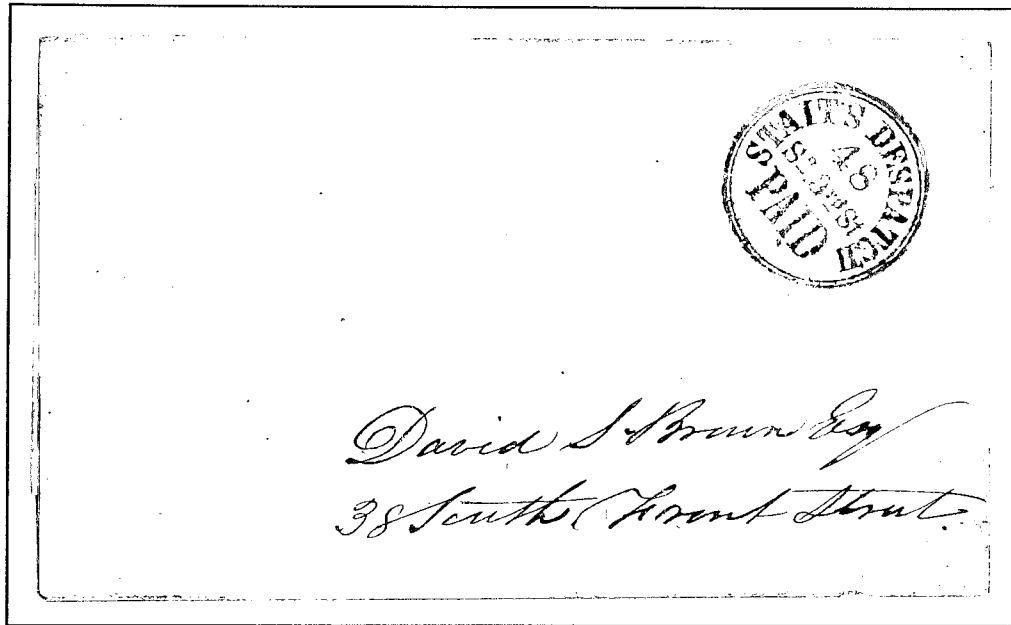 STAIT'S DESPATCH
48
So. 3rd St
PAID
David S. Brown Esq
38 South Front Street.